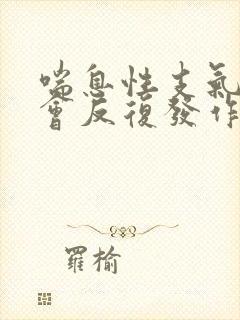 喘息性支氣
會反復發作
羅榆